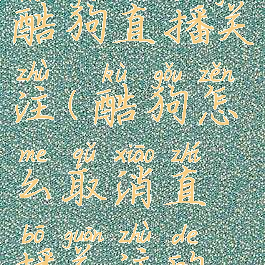 酷狗直播关
zhù kù gǒu zěn
注(酷狗怎
me qǔ xiāo zhí
么取消直
bō guān zhù de